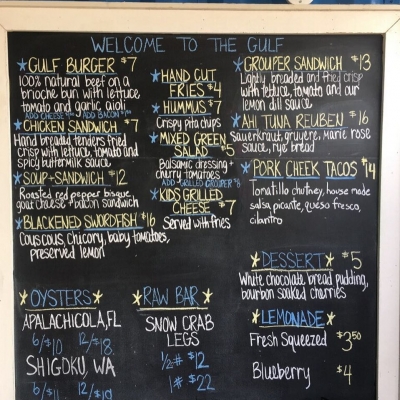 WELCOME TO THE GULF
GULF BURGER $7
100% natural beef on a
brioche bun with lettuce,
tomato and garlic aioli
ADD CHEESE
ADD BACON
CHICKEN SANDWICH $7
Hand breaded tenders fried
crisp with lettuce, tomato and
spicy buttermilk sauce
SOUP+SANDWICH $12
Roasted red pepper bisque,
goat cheese + bacon sandwich
BLACKENED SWORDFISH $16
Couscous, chicory, baby tomatoes,
preserved lemon
HAND CUT
FRIES $4
HUMMUS $7
Crispy pita chips
MIXED GREEN
SALAD $5
Balsamic dressing +
cherry tomatoes
ADD GRILLED GROUPER $8
KIDS GRILLED
CHEESE $7
Served with fries
GROUPER SANDWICH $13
Lightly breaded and fried crisp
with lettuce, tomato and our
lemon dill sauce
AHI TUNA REUBEN $16
Sauerkraut, gruyere, marie rose
sauce, rye bread
PORK CHEEK TACOS $14
Tomatillo chutney, house made
salsa, picante, queso fresco,
cilantro
DESSERT $5
White chocolate bread pudding,
bourbon soaked cherries
LEMONADE
Fresh Squeezed $3.50
Blueberry $4
OYSTERS
APALACHICOLA, FL
6/$10 12/$18
SHIGOKU, WA
6/$11 12/$19
RAW BAR
SNOW CRAB
LEGS
1/2# $12
1# $22